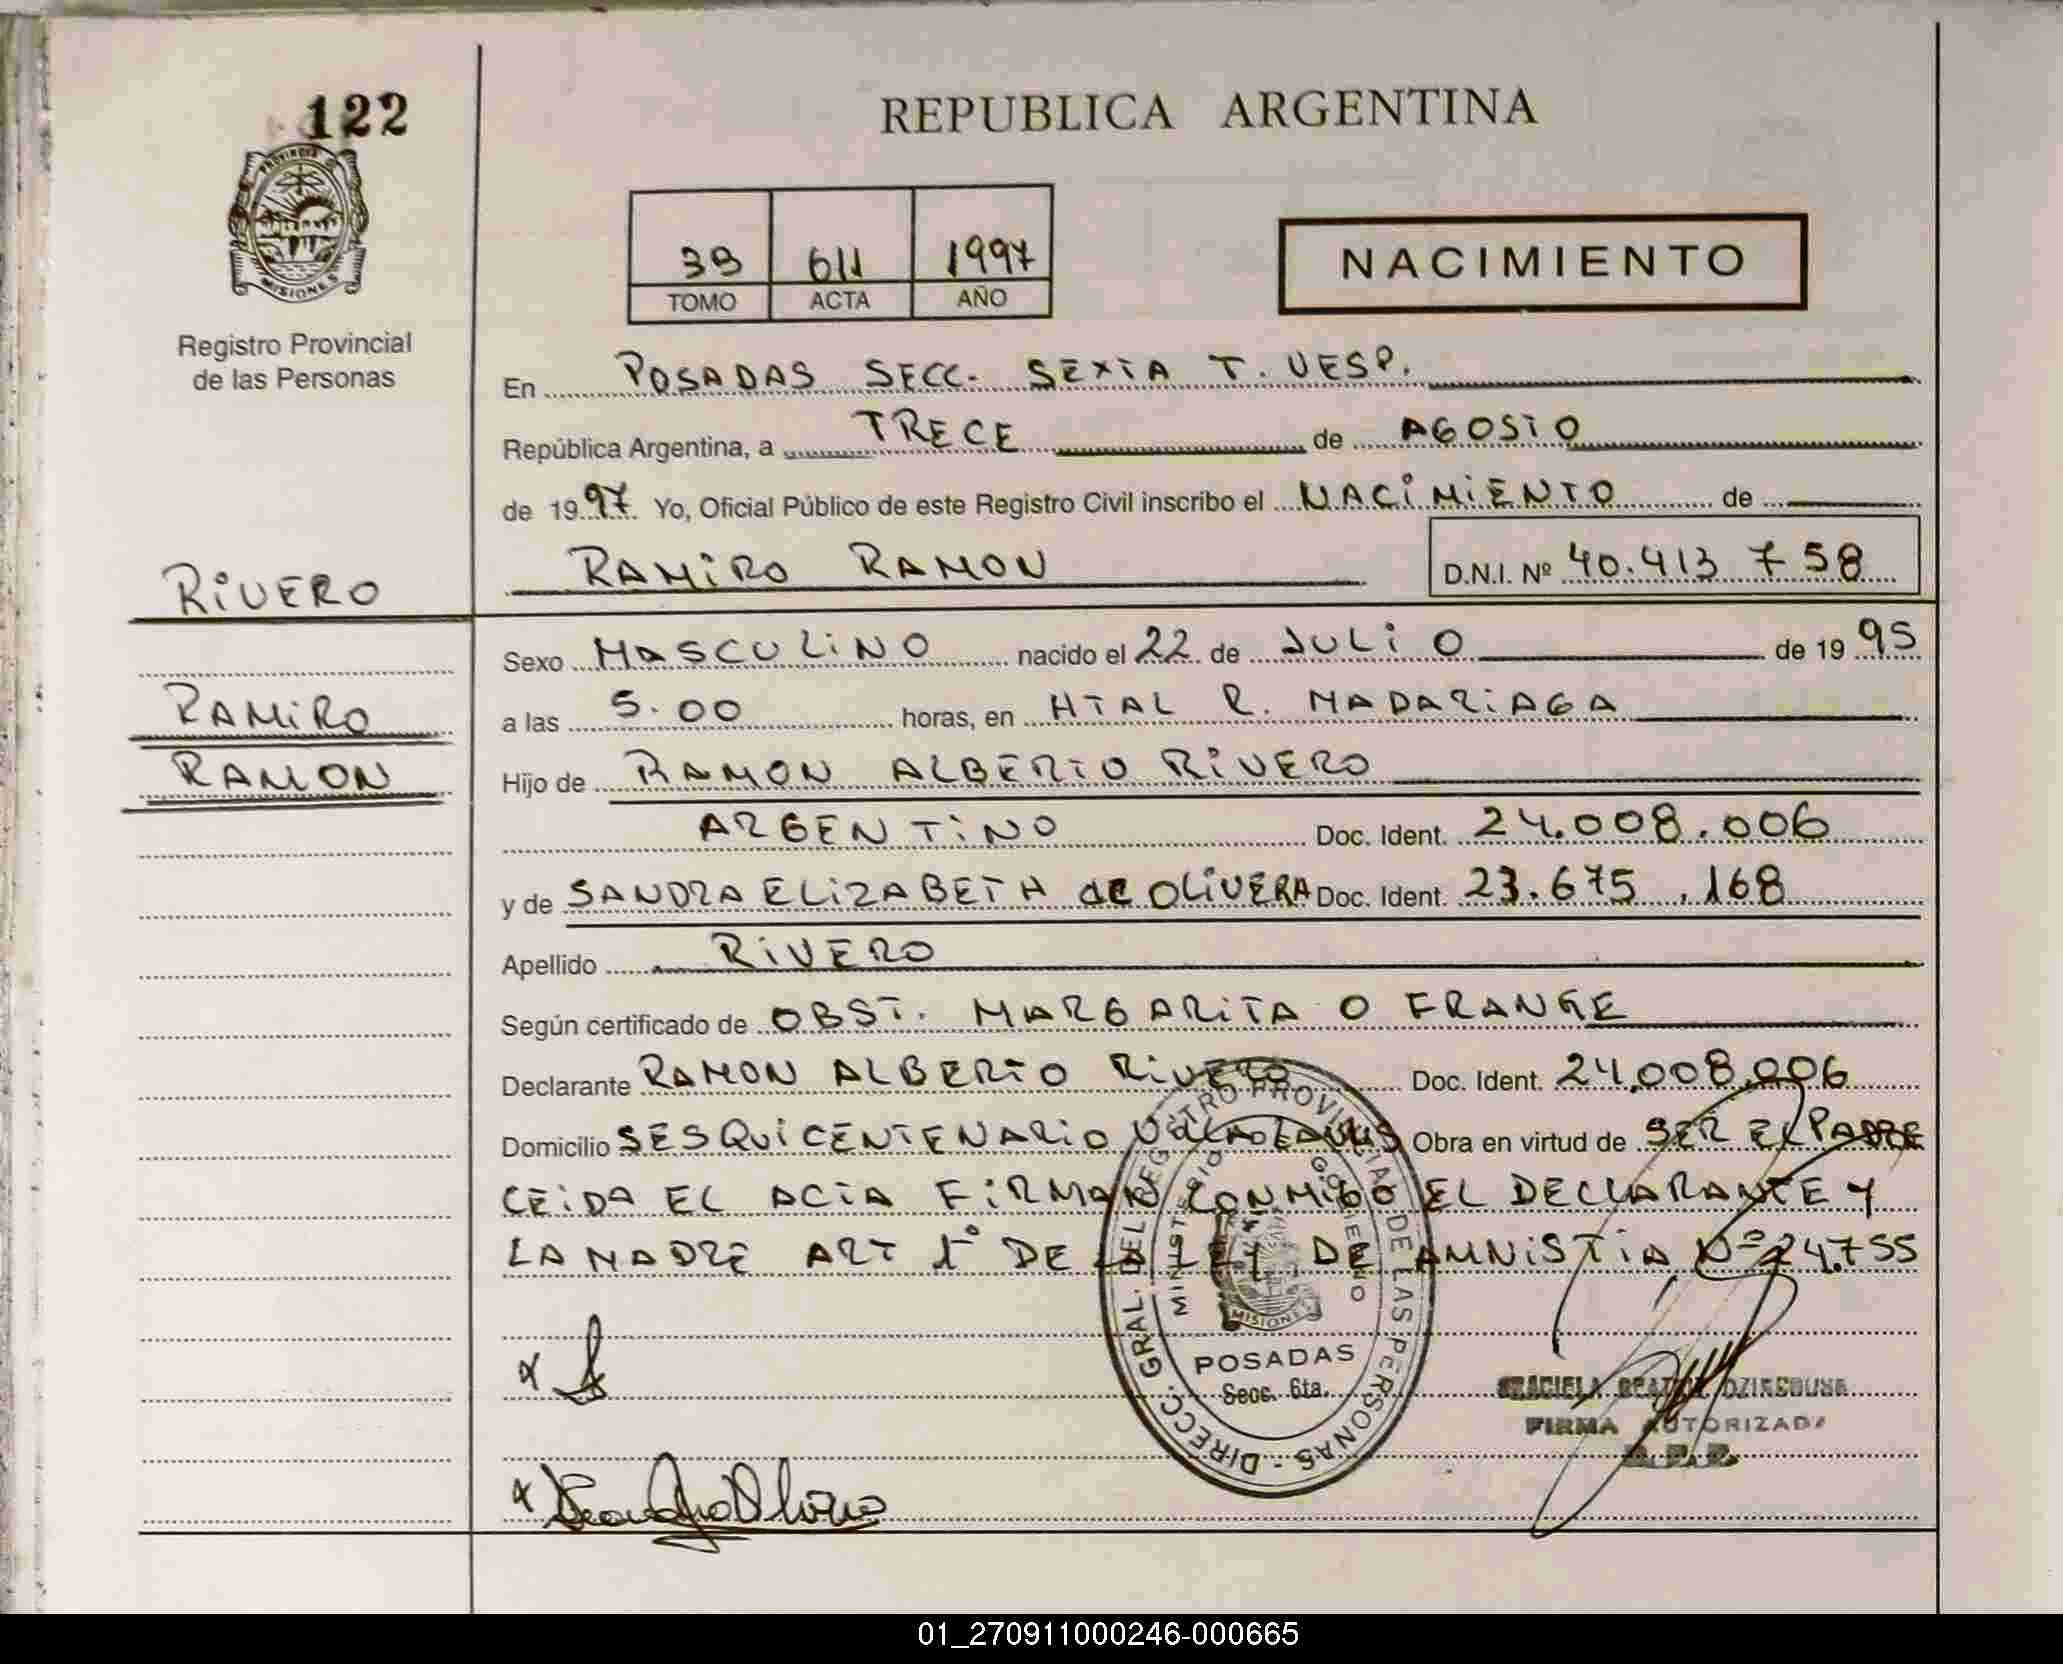 122
REPUBLICA ARGENTINA
PROVINCIA DE
MISIONES
Registro Provincial
de las Personas
3B 611 1997
TOMO ACTA AÑO
NACIMIENTO
En POSADAS SECC. SEXTA T. VESP.
República Argentina, a TRECE de AGOSTO
de 1997 Yo, Oficial Público de este Registro Civil inscribo el NACIMIENTO de
RAMIRO RAMON D.N.I. Nº 40.413 758
RIVERO
RAMIRO
RAMON
Sexo MASCULINO nacido el 22 de JULIO de 1995
a las 5.00 horas, en HTAL R. MADARIAGA
Hijo de RAMON ALBERTO RIVERO
ARGENTINO Doc. Ident. 24.008.006
y de SANDRA ELIZABETH de OLIVERA Doc. Ident. 23.675.168
Apellido RIVERO
Según certificado de OBST. MARGARITA O FRANGE
Declarante RAMON ALBERTO RIVERO Doc. Ident. 24.008.006
Domicilio SESQUICENTENARIO Obra en virtud de SER EL PADRE
LEIDA EL ACTA FIRMAN CONMIGO EL DECLARANTE Y
LA MADRE ART 1º DE LA LEY DE AMNISTIA Nº 24.755
DIRECC. GRAL. DEL REGISTRO PROVINCIAL DE LAS PERSONAS
MINISTERIO GOBIERNO
MISIONES
POSADAS
Secc. 6ta.
GRACIELA BEATRIZ
FIRMA AUTORIZADA
R.P.P.
01_270911000246-000665